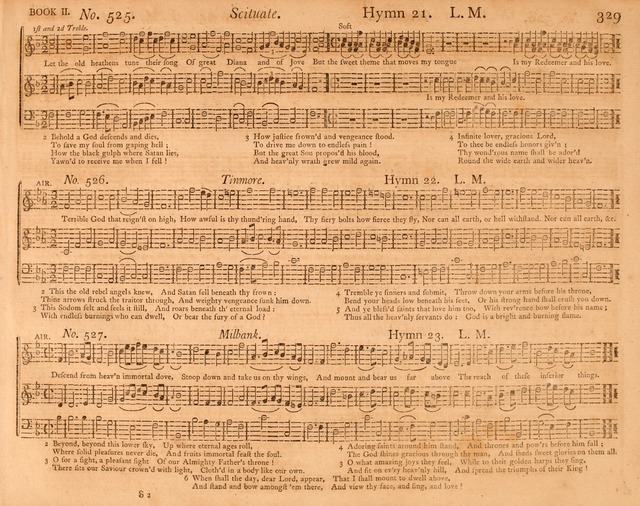 BOOK II. No. 525. Scituate. Hymn 21. L. M. 329
1st and 2d Treble. Soft
Let the old heathens tune their ſong Of great Diana and of Jove But the sweet theme that moves my tongue Is my Redeemer and his love.
Is my Redeemer and his love.
2 Behold a God deſcends and dies,
To ſave my ſoul from gaping hell ;
How the black gulph where Satan lies,
Yawn'd to receive me when I fell !
3 How juſtice frown'd and vengeance ſtood.
To drive me down to endleſs pain !
But the great Son propos'd his blood,
And heav'nly wrath grew mild again.
4 Infinite lover, gracious Lord,
To thee be endleſs honors giv'n ;
Thy wond'rous name ſhall be ador'd
Round the wide earth and wider heav'n.
AIR. No. 526. Tinmore. Hymn 22. L. M.
Terrible God that reign'ſt on high, How awful is thy thund'ring hand, Thy fiery bolts how fierce they fly, Nor can all earth, or hell withſtand. Nor can all earth, &c.
2 This the old rebel angels knew, And Satan fell beneath thy frown ;
Thine arrows ſtruck the traitor through, And weighty vengeance ſunk him down.
3 This Sodom felt and feels it ſtill, And roars beneath th' eternal load :
With endleſs burnings who can dwell, Or bear the fury of a God ?
4 Tremble ye ſinners and ſubmit, Throw down your arms before his throne,
Bend your heads low beneath his feet, Or his ſtrong hand ſhall cruſh you down.
5 And ye bleſs'd ſaints that love him too, With rev'rence bow before his name ;
Thus all the heav'nly ſervants do : God is a bright and burning flame.
AIR. No. 527. Milbank. Hymn 23. L. M.
Deſcend from heav'n immortal dove, Stoop down and take us on thy wings, And mount and bear us far above The reach of theſe inferior things.
2 Beyond, beyond this lower ſky, Up where eternal ages roll,
Where ſolid pleaſures never die, And fruits immortal feaſt the ſoul.
3 O for a ſight, a pleaſant ſight Of our Almighty Father's throne !
There ſits our Saviour crown'd with light, Cloth'd in a body like our own.
4 Adoring ſaints around him ſtand, And thrones and pow'rs before him fall ;
The God ſhines gracious through the man, And ſheds ſweet glories on them all.
5 O what amazing joys they feel, While to their golden harps they ſing,
And ſit on ev'ry heav'nly hill, And ſpread the triumphs of their King !
6 When ſhall the day, dear Lord, appear, That I ſhall mount to dwell above,
And ſtand and bow amongſt 'em there, And view thy face, and ſing, and love !
S 2